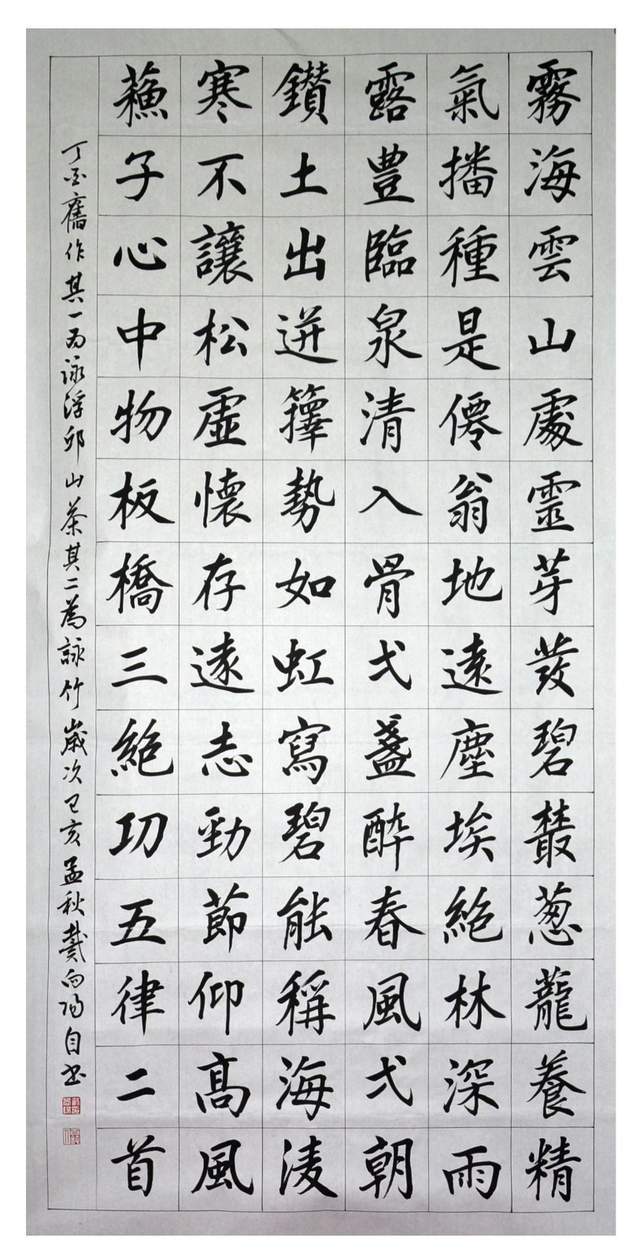 霧海雲山處靈芽發碧叢蔥蘢養精
氣播種是僊翁地遠塵埃絕林深雨
露豊臨泉清入骨弋盞醉春風弋朝
鑚土出迸籜勢如虹寫碧能稱海淩
寒不讓松虛懷存遠志勁節仰高風
蘓子心中物板橋三絕功五律二首
丁酉舊作其一為詠浮邱山茶其二為詠竹歲次己亥孟秋戴向陽自書